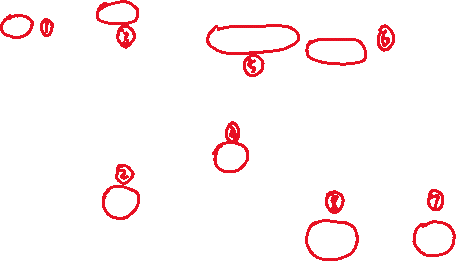 ① ③
⑤ ⑥
④
②
⑧ ⑦